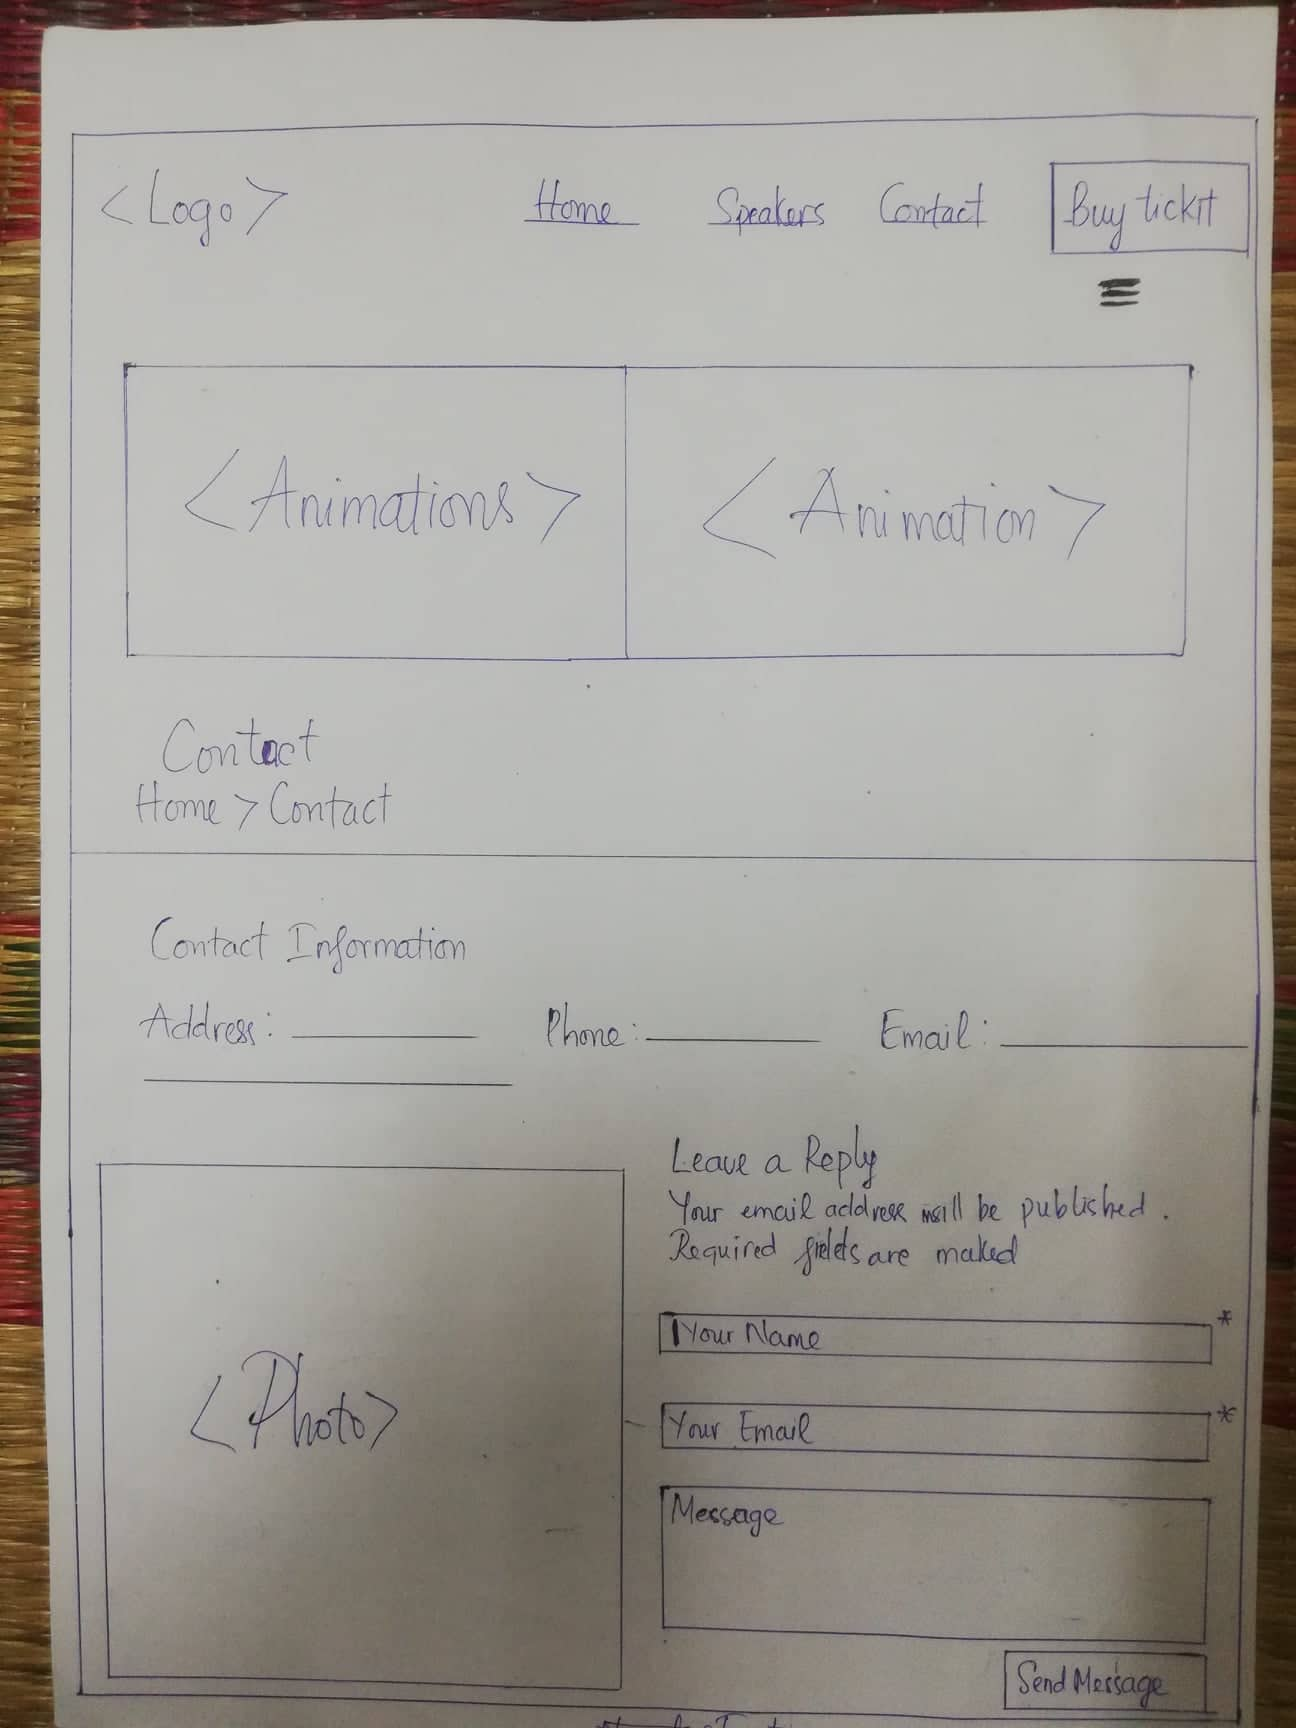 <Logo>
Home Speakers Contact Buy tickit
<Animations> <Animation>
Contact
Home > Contact
Contact Information
Address: Phone: Email:
Leave a Reply
Your email address will be published.
Required fields are maked
<Photo>
Your Name *
Your Email *
Message
Send Message